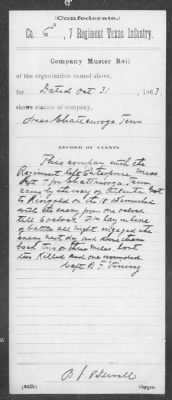 (Confederate.)
Co. E, 7 Regiment Texas Infantry.
Company Muster Roll
of the organization named above,
for Dated Oct 31, 1863.
shows station of company,
Near Chattanooga Tenn
RECORD OF EVENTS.
This company with the
Regiment left Enterprise Miss
Sept 7 for Chattanooga Tenn
came by the way of Atlanta
to Ringgold on the 18
with the enemy from one oclock
till 6 oclock. in line
of battle all night engaged the
enemy next day and
back two or three miles
two killed and one wounded.
Capt
(642b) Copyist.